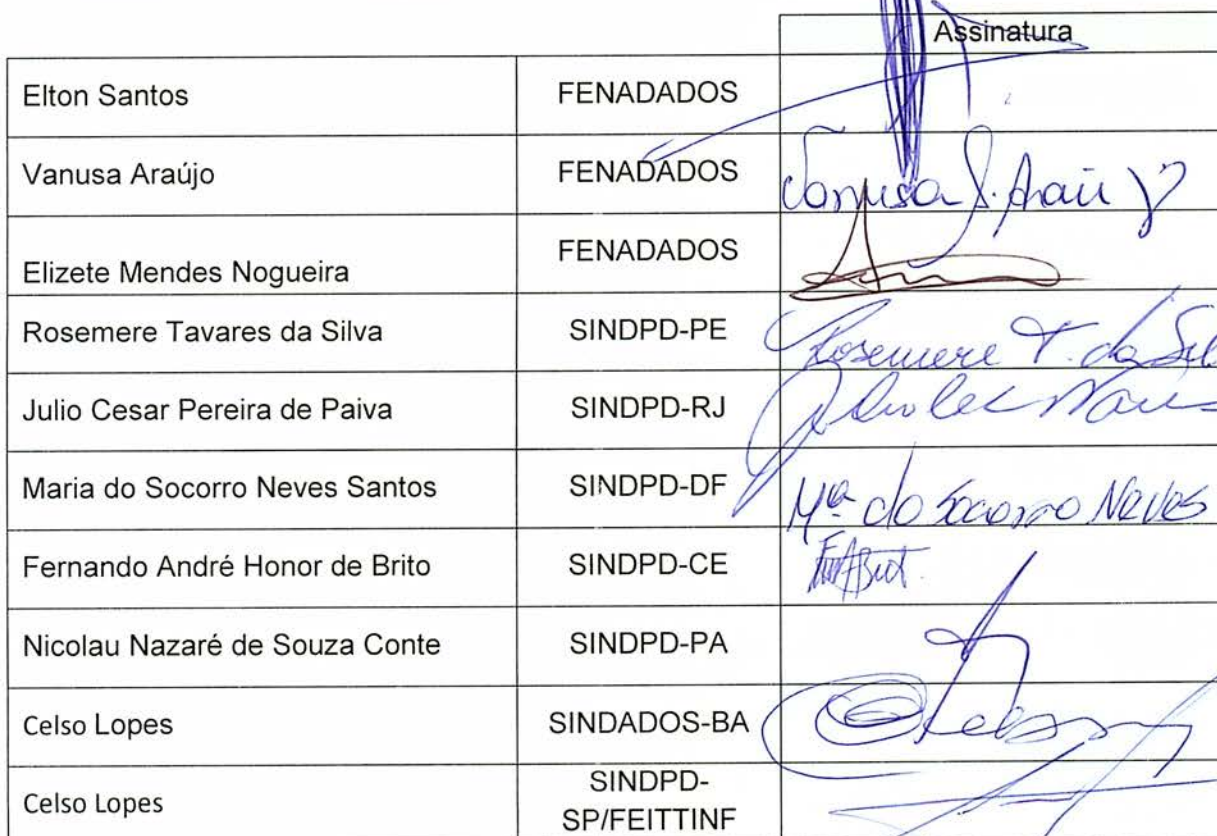 Assinatura
Elton Santos FENADADOS
Vanusa Araújo FENADADOS Vanusa S. Araújo
Elizete Mendes Nogueira FENADADOS
Rosemere Tavares da Silva SINDPD-PE Rosemere T. da Sil
Julio Cesar Pereira de Paiva SINDPD-RJ
Maria do Socorro Neves Santos SINDPD-DF Mª do Socorro Neves
Fernando André Honor de Brito SINDPD-CE
Nicolau Nazaré de Souza Conte SINDPD-PA
Celso Lopes SINDADOS-BA
Celso Lopes SINDPD-
SP/FEITTINF